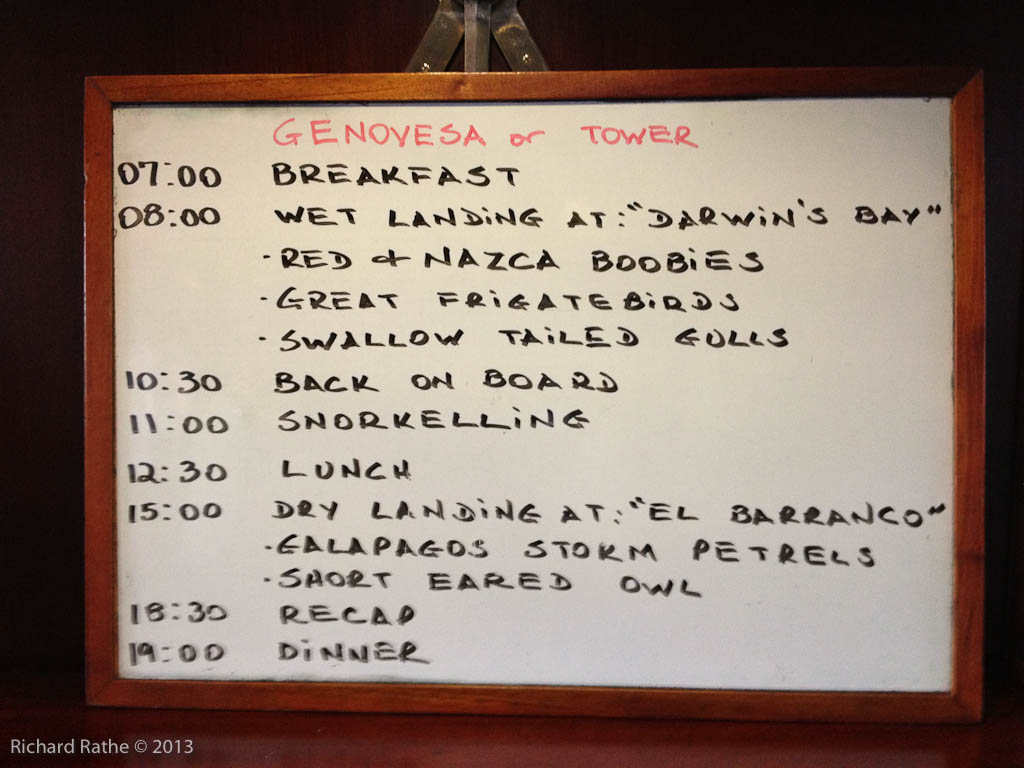 GENOVESA or TOWER
07:00 BREAKFAST
08:00 WET LANDiNG AT: "DARWiN'S BAY"
·RED & NAZCA BOOBiES
·GREAT FRiGATEBiRDS
·SWALLOW TAiLED GULLS
10:30 BACK ON BOARD
11:00 SNORKELLiNG
12:30 LUNCH
15:00 DRY LANDiNG AT: "EL BARRANCO"
·GALAPAGOS STORM PETRELS
·SHORT EARED OWL
18:30 RECAP
19:00 DiNNER
Richard Rathe © 2013